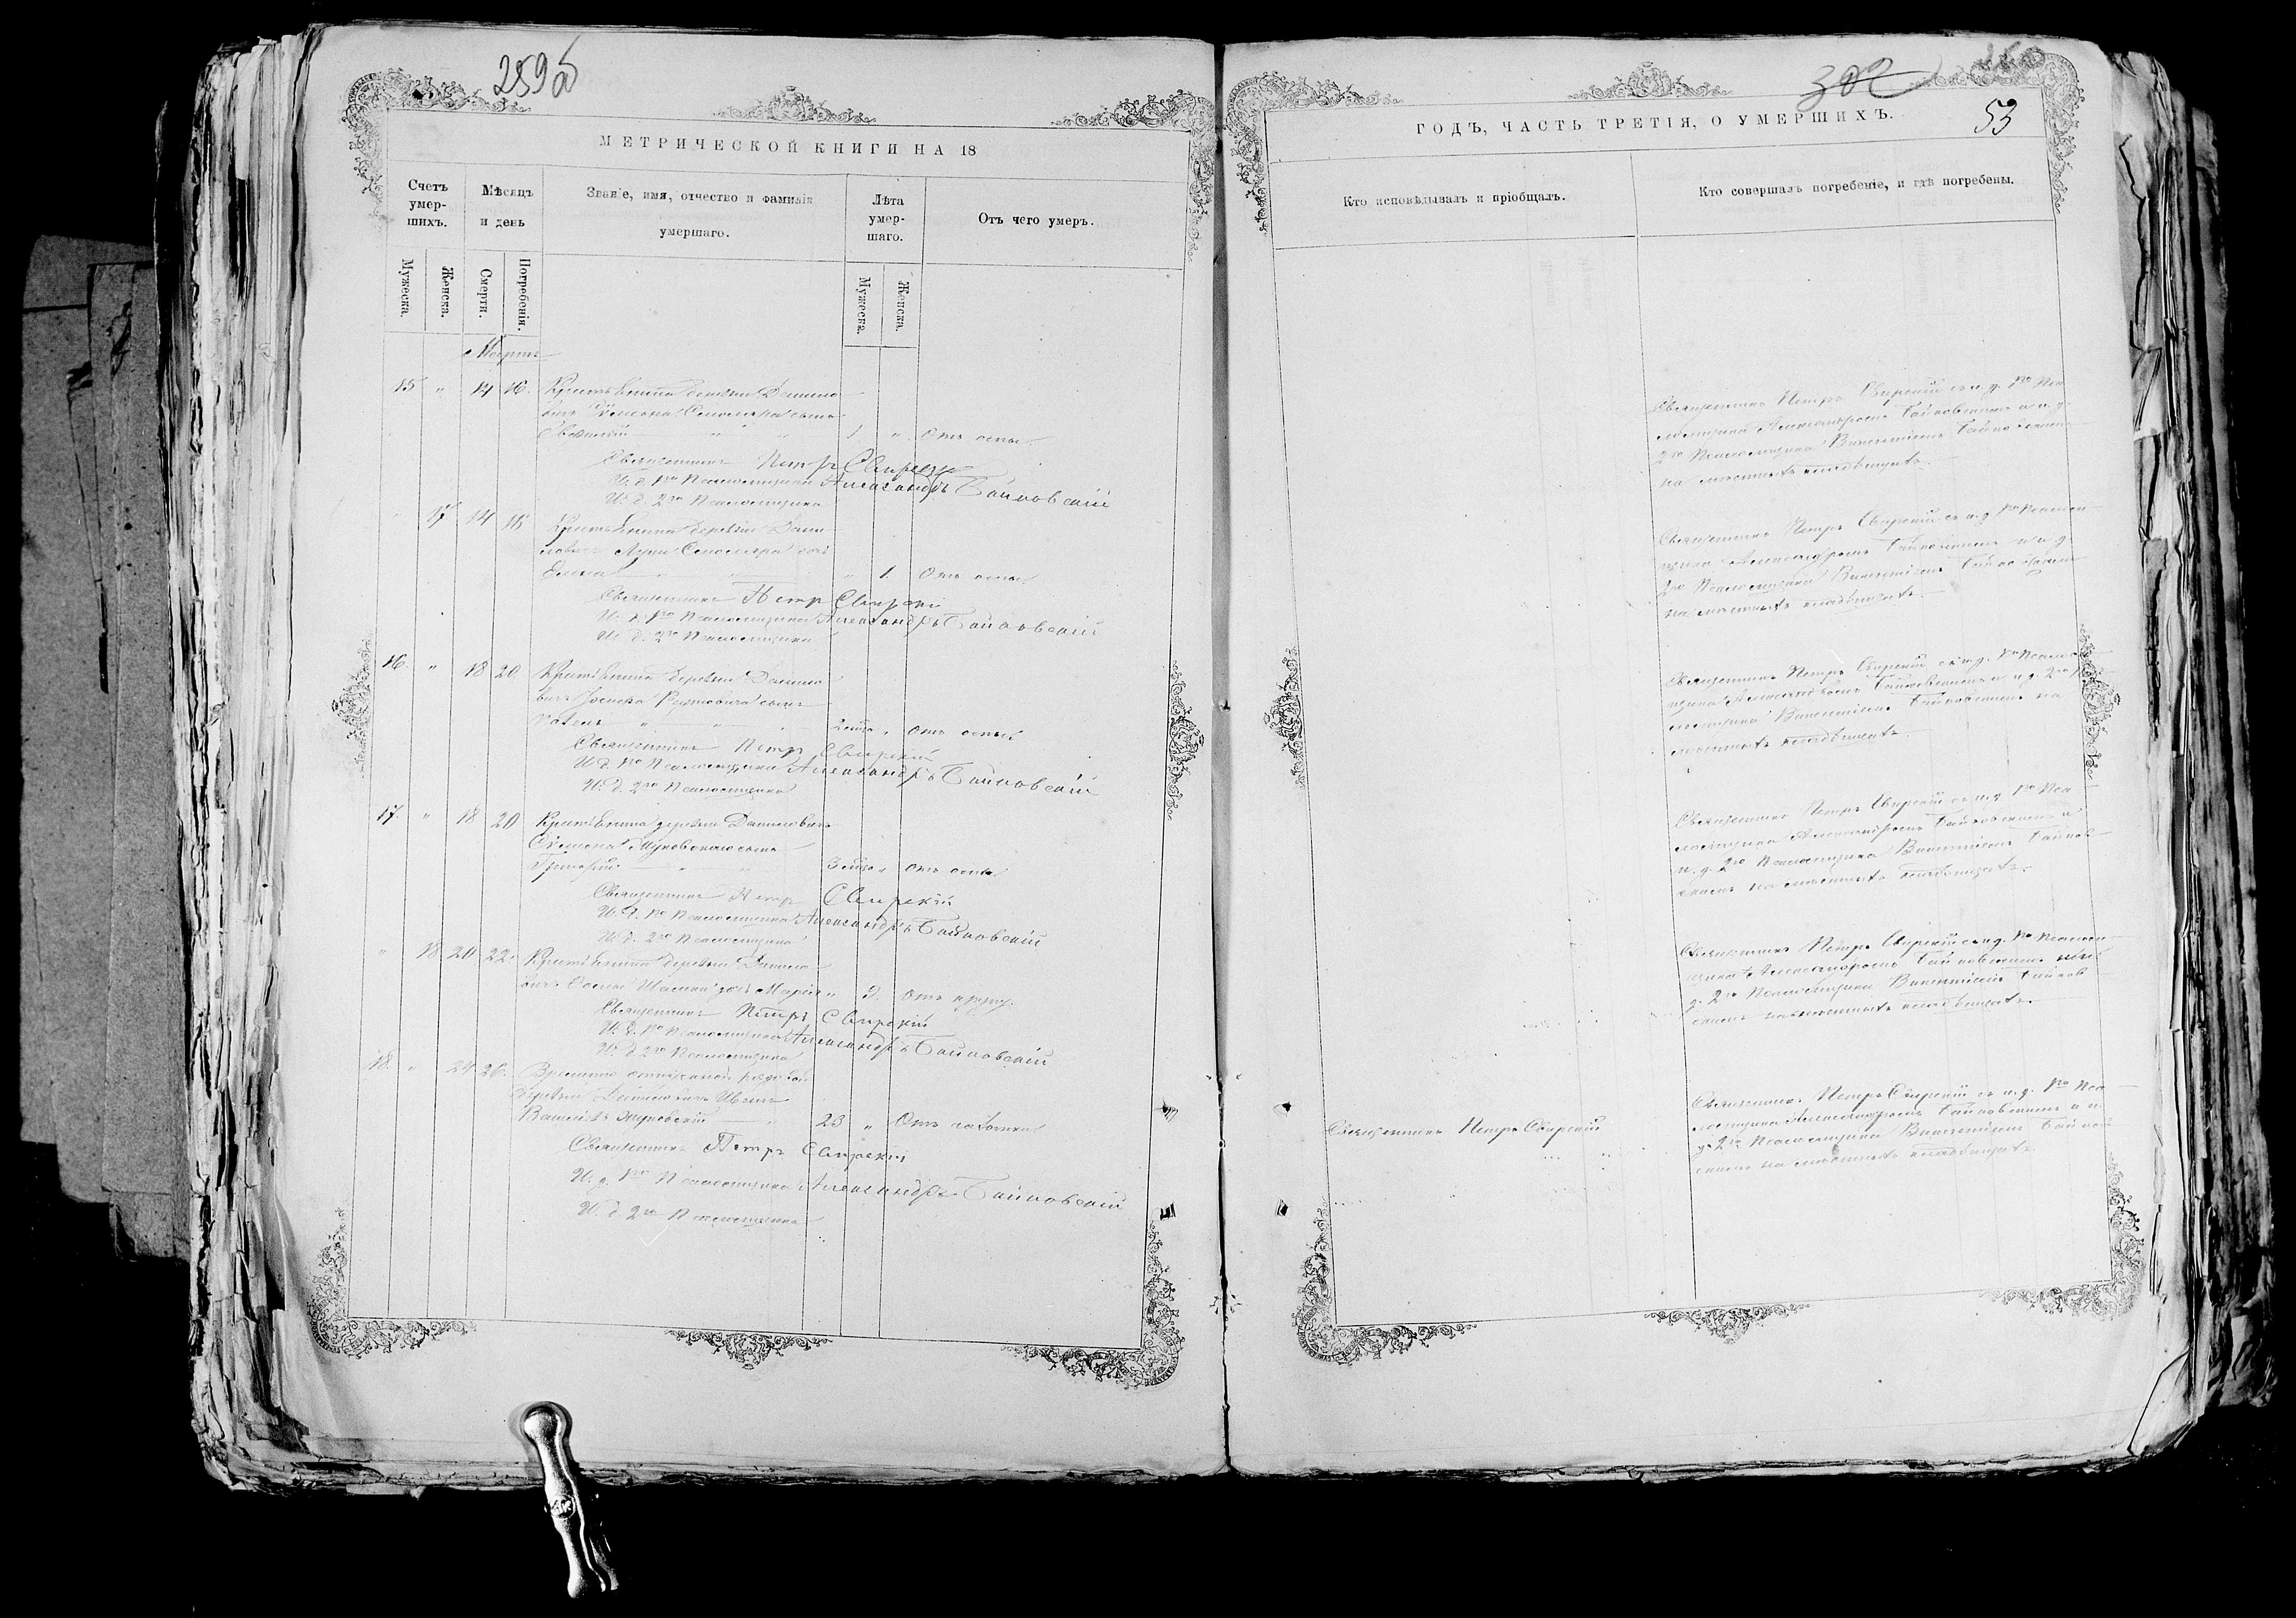 259б
МЕТРИЧЕСКОЙ КНИГИ НА 18
Счетъ умер-шихъ.
Мѣсяцъ и день
Званіе, имя, отчество и фамилія умершаго.
Лѣта умер-шаго.
Отъ чего умеръ.
Мужеска.
Женска.
Смерти.
Погребенія.
Мужеска.
Женска.
Мартъ
15 " 14 16. Крестьянина деревни Данило
вичъ Симеона Столяра сынъ
Евфимій " " 1 " Отъ оспы.
Священникъ Петръ Свирскій
И. д. 1го Псаломщика Александръ Байковскій
И. д. 2го Псаломщика
" 17 14 16 Крестьянина деревни Дани
ловичъ Столяра дочь
Елена " 1. Отъ оспы
Священникъ Петръ Свирскій
И. д. 1го Псаломщика Александръ Байковскій
И. д. 2го Псаломщика
16. " 18 20. Крестьянина деревни Данило
вичъ Іосифа сынъ
" Отъ оспы
Священникъ Петръ Свирскій
И. д. 1го Псаломщика Александръ Байковскій
И. д. 2го Псаломщика
17. " 18 20 Крестьянина деревни Даниловичъ
Симеона Жуковскаго сынъ
Григорій " Отъ оспы
Священникъ Петръ Свирскій
И. д. 1го Псаломщика Александръ Байковскій
И. д. 2го Псаломщика
" 18 20 22. Крестьянина деревни Данило
вичъ дочь Марія " Отъ
Священникъ Петръ Свирскій
И. д. 1го Псаломщика Александръ Байковскій
И. д. 2го Псаломщика
18. " 24 26. Временно отпускной рядовой
деревни Даниловичъ Иванъ
Васильевъ Жуковскій " 23 " Отъ чахотки
Священникъ Петръ Свирскій
И. д. 1го Псаломщика Александръ Байковскій
И. д. 2го Псаломщика
302
53
ГОДЪ, ЧАСТЬ ТРЕТІЯ, О УМЕРШИХЪ.
Кто исповѣдывалъ и пріобщалъ.
Кто совершалъ погребеніе, и гдѣ погребены.
Священникъ Петръ Свирскій съ и. д. 1го Пса
ломщика Александромъ Байковскимъ и и. д.
2го Псаломщика Викентіемъ Байковскимъ
на мѣстномъ кладбищѣ.
Священникъ Петръ Свирскій съ и. д. 1го Псалом
щика Александромъ Байковскимъ и и. д.
2го Псаломщика Викентіемъ Байковскимъ
на мѣстномъ кладбищѣ.
Священникъ Петръ Свирскій съ и. д. 1го Псалом
щика Александромъ Байковскимъ и и. д. 2го Пса
ломщика Викентіемъ Байковскимъ на
мѣстномъ кладбищѣ.
Священникъ Петръ Свирскій съ и. д. 1го Пса
ломщика Александромъ Байковскимъ и
и. д. 2го Псаломщика Викентіемъ Байков
скимъ на мѣстномъ кладбищѣ.
Священникъ Петръ Свирскій съ и. д. 1го Псалом
щика Александромъ Байковскимъ и и.
д. 2го Псаломщика Викентіемъ Байков
скимъ на мѣстномъ кладбищѣ.
Священникъ Петръ Свирскій
Священникъ Петръ Свирскій съ и. д. 1го Пса
ломщика Александромъ Байковскимъ и и.
д. 2го Псаломщика Викентіемъ Байков
скимъ на мѣстномъ кладбищѣ.